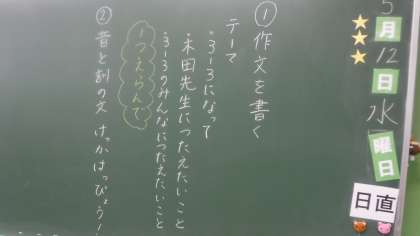 5
月
12
日
水
曜日
日直
①作文を書く
テーマ
・3-3になって
・木田先生につたえたいこと
・3-3のみんなにつたえたいこと
1つえらんで
② 昔と刻の文 けっかはっぴょう！